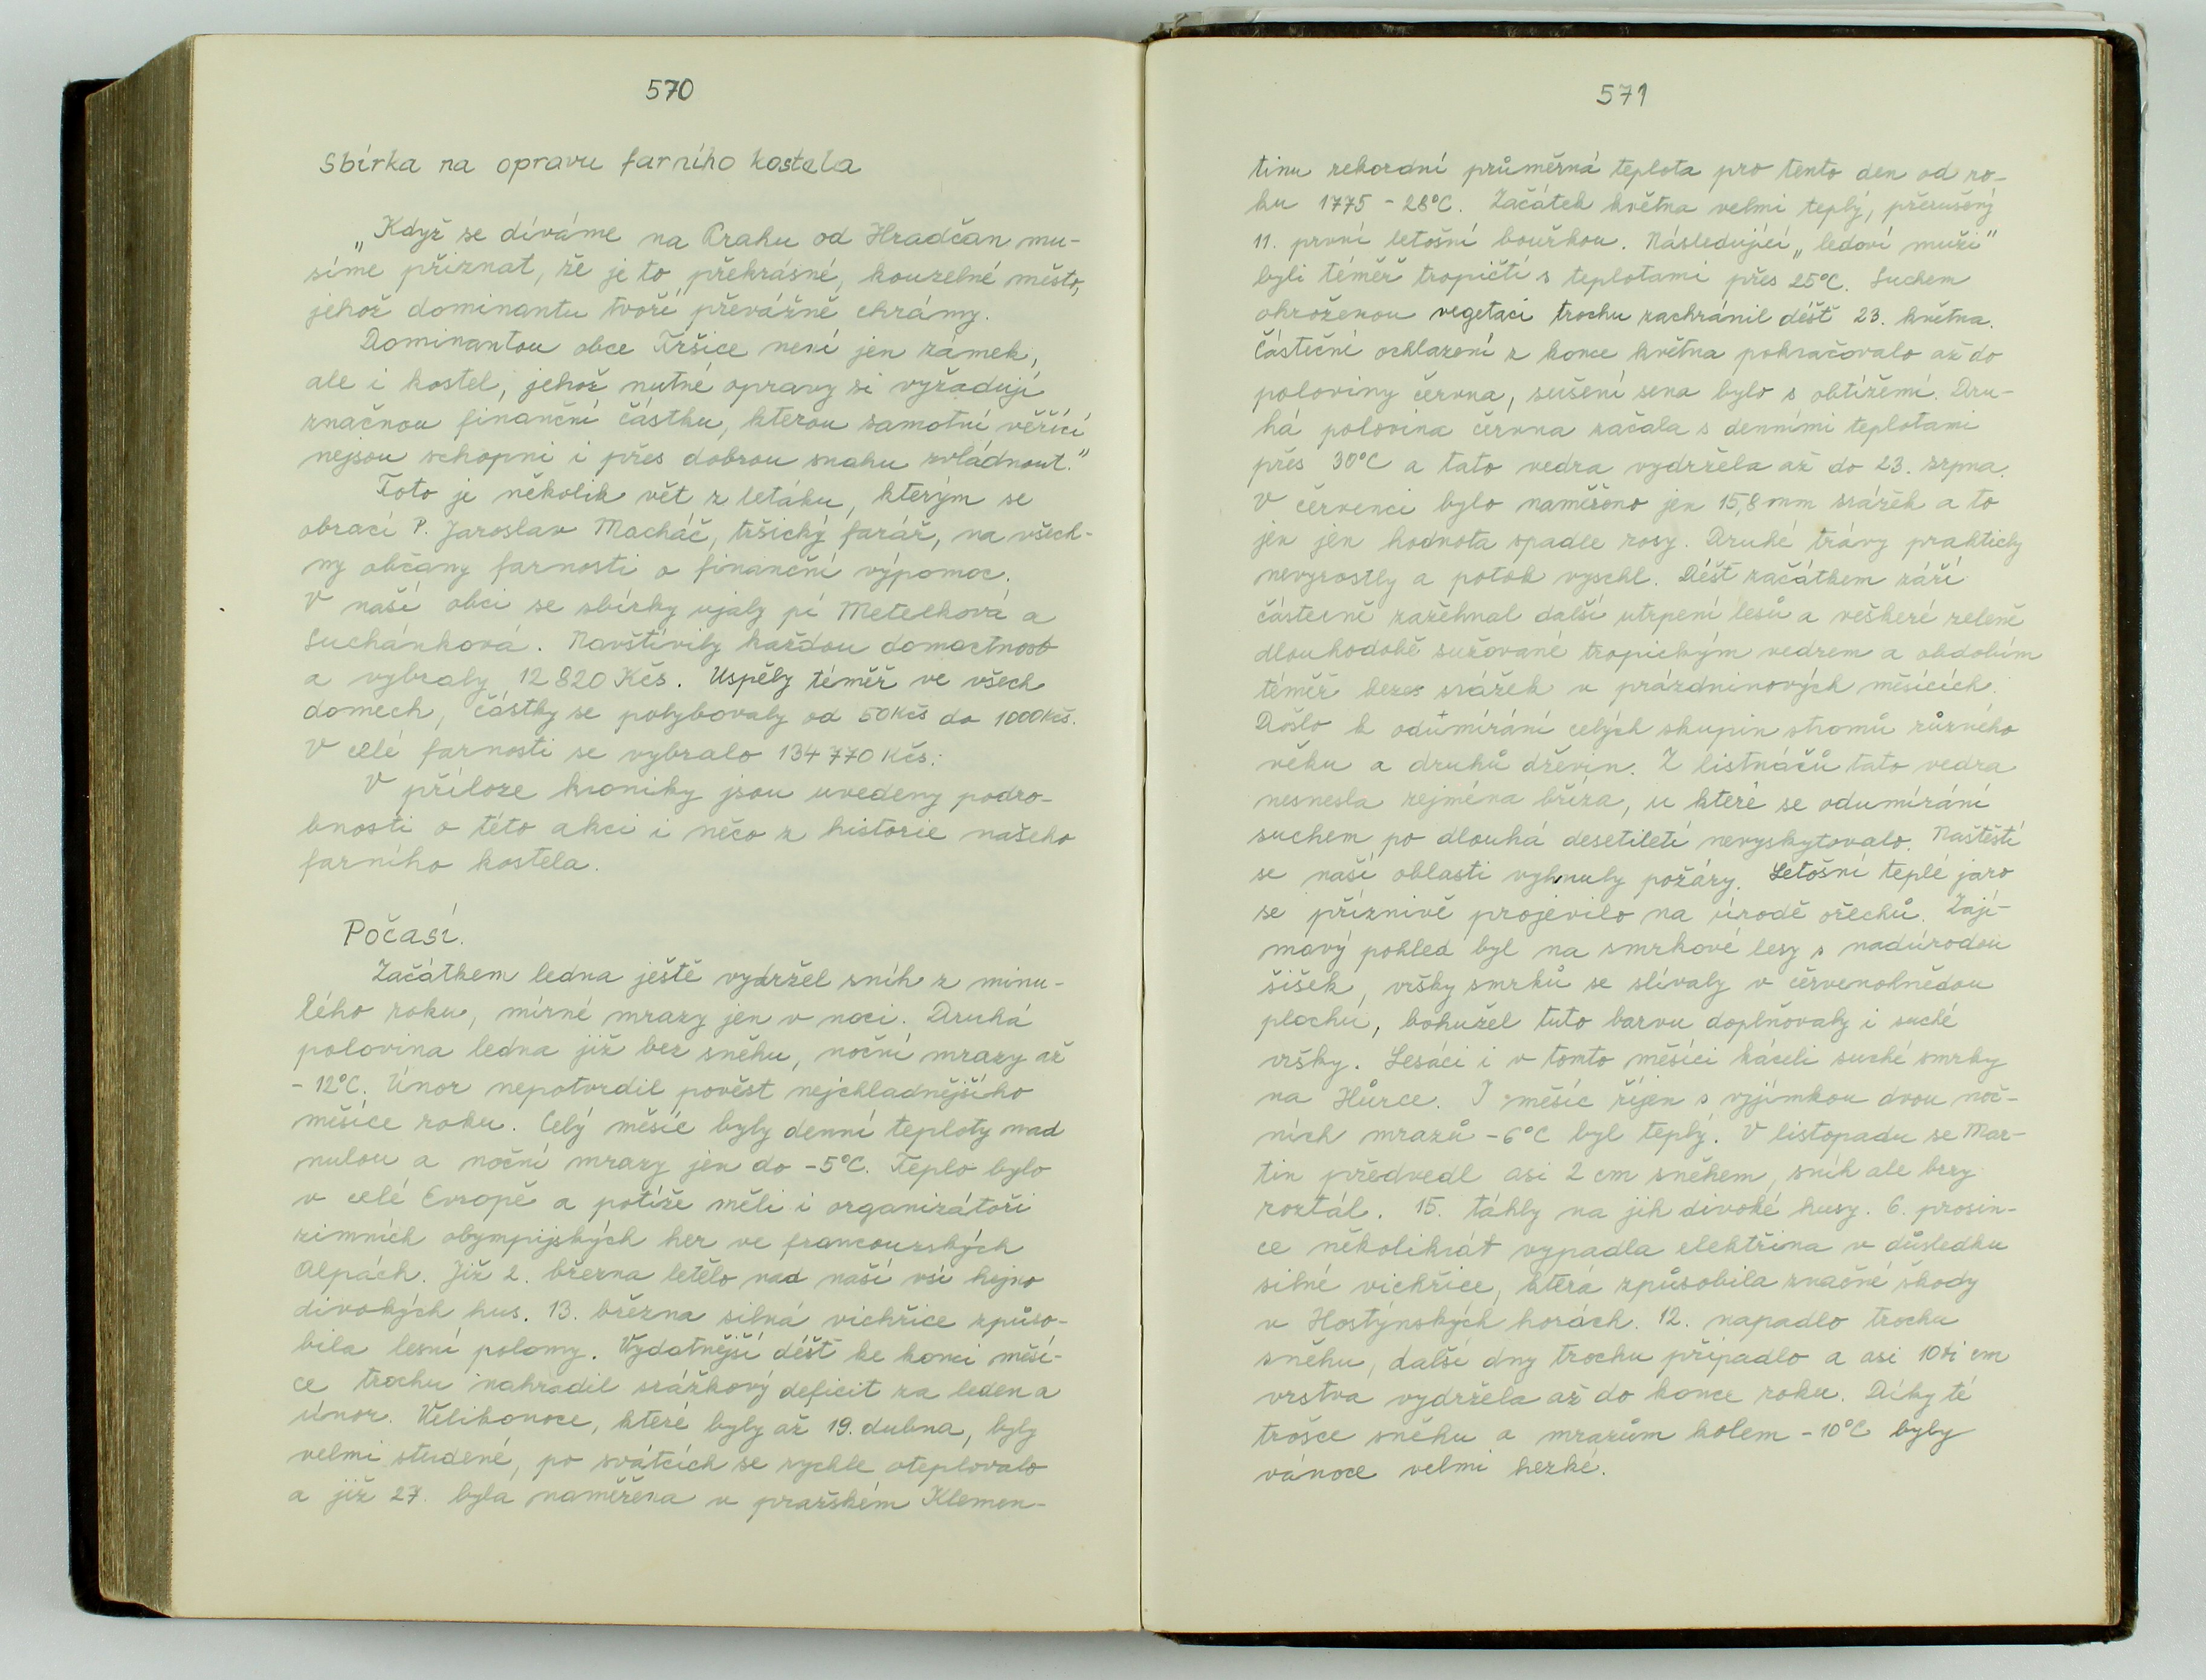 570
Sbírka na opravu farního kostela
„Když se díváme na Prahu od Hradčan mu-
síme přiznat, že je to překrásné, kouzelné město,
jehož dominantu tvoří převážně chrámy.
Dominantou obce Tršice není jen zámek,
ale i kostel, jehož nutné opravy si vyžadují
značnou finanční částku, kterou samotní věřící
nejsou schopni i přes dobrou snahu zvládnout."
Toto je několik vět z letáku, kterým se
obrací P. Jaroslav Macháč, tršický farář, na všech-
ny občany farnosti o finanční výpomoc.
V naší obci se sbírky ujaly pí Metelková a
Suchánková. Navštívily každou domactnost
a vybraly 12 820 Kčs. Uspěly téměř ve všech
domech, částky se pohybovaly od 50 Kčs do 1000 Kčs.
V celé farnosti se vybralo 134 770 Kčs.
V příloze kroniky jsou uvedeny podro-
bnosti o této akci i něco z historie našeho
farního kostela.
Počasí.
Začátkem ledna ještě vydržel sníh z minu-
lého roku, mírné mrazy jen v noci. Druhá
polovina ledna již bez sněhu, noční mrazy až
- 12°C. Únor nepotvrdil pověst nejchladnějšího
měsíce roku. Celý měsíc byly denní teploty nad
nulou a noční mrazy jen do -5°C. Teplo bylo
v celé Evropě a potíže měli i organizátoři
zimních olympijských her ve francouzských
Alpách. Již 2. března letělo nad naší vsí hejno
divokých hus. 13. března silná vichřice způso-
bila lesní polomy. Vydatnější déšť ke konci měsí-
ce trochu nahradil srážkový deficit za leden a
únor. Velikonoce, které byly až 19. dubna, byly
velmi studené, po svátcích se rychle oteplovalo
a již 27. byla naměřena v pražském Klemen-
571
tinu rekordní průměrná teplota pro tento den od ro-
ku 1775 - 28°C. Začátek května velmi teplý, přerušený
11. první letošní bouřkou. Následující „ledoví muži"
byli téměř tropičtí s teplotami přes 25°C. Suchem
ohroženou vegetaci trochu zachránil déšť 23. května.
Částečné ochlazení z konce května pokračovalo až do
poloviny června, sušení sena bylo s obtížemi. Dru-
há polovina června začala s denními teplotami
přes 30°C a tato vedra vydržela až do 23. srpna.
V červenci bylo naměřeno jen 15,8 mm srážek a to
jen jen hodnota spadle rosy. Druhé trávy prakticky
nevyrostly a potok vyschl. Déšť začátkem září
částečně zažehnal další utrpení lesů a veškeré zeleně
dlouhodobě sužované tropickým vedrem a obdobím
téměř bezes srážek v prázdninových měsících.
Došlo k odumírání celých skupin stromů různého
věku a druhů dřevin. Z listnáčů tato vedra
nesnesla zejména bříza, u které se odumírání
suchem po dlouhá desetiletí nevyskytovalo. Naštěstí
se naší oblasti vyhnuly požáry. Letošní teplé jaro
se příznivě projevilo na úrodě ořechů. Zají-
mavý pohled byl na smrkové lesy s nadúrodou
šišek, vršky smrků se slívaly v červenohnědou
plochu, bohužel tuto barvu doplňovaly i suché
vršky. Lesáci i v tomto měsíci káceli suché smrky
na Hůrce. I měsíc říjen s vyjímkou dvou noč-
ních mrazů -6°C byl teplý. V listopadu se Mar-
tin předvedl asi 2 cm sněhem, sníh ale brzy
roztál. 15. táhly na jih divoké husy. 6. prosin-
ce několikrát vypadla elektřina v důsledku
silné vichřice, která způsobila značné škody
v Hostýnských horách. 12. napadlo trochu
sněhu, další dny trochu připadlo a asi 10ti cm
vrstva vydržela až do konce roku. Díky té
trošce sněhu a mrazům kolem -10°C byly
vánoce velmi hezké.